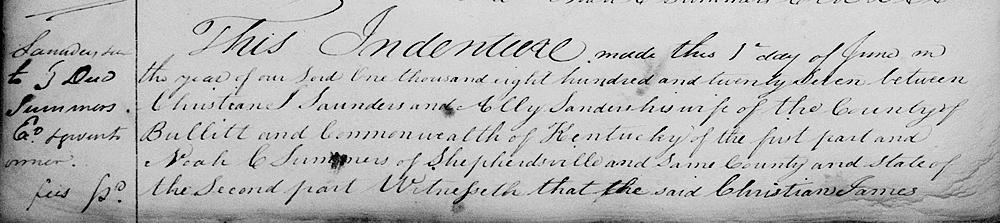 Noah C Summers
Saunders
to } Deed
Summers.
Exd & sent
owner.
fees pd.
This Indenture made this 1st day of June in
the year of our Lord One thousand eight hundred and twenty Seven between
Christian J Saunders and Ally Sanders his wife of the County of
Bullitt and Commonwealth of Kentucky of the first part and
Noah C Summers of Shepherdsville and Same County and State of
the Second part Witnesseth that the said Christian James